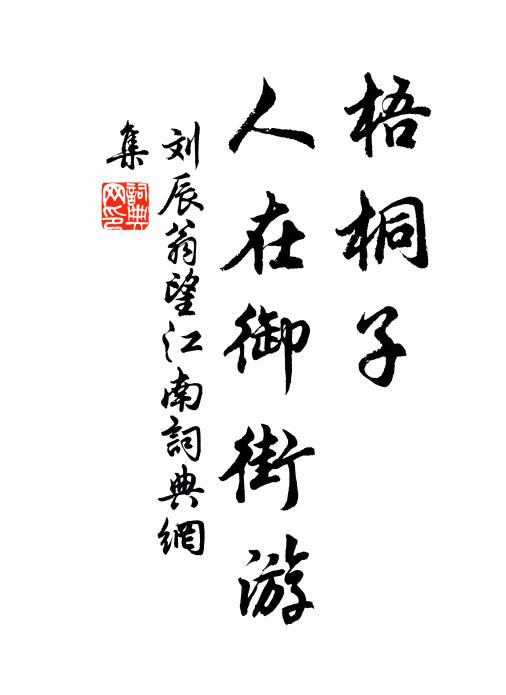 梧桐子
人在御街游
刘辰翁望江南詞典網
集
詞典
网印